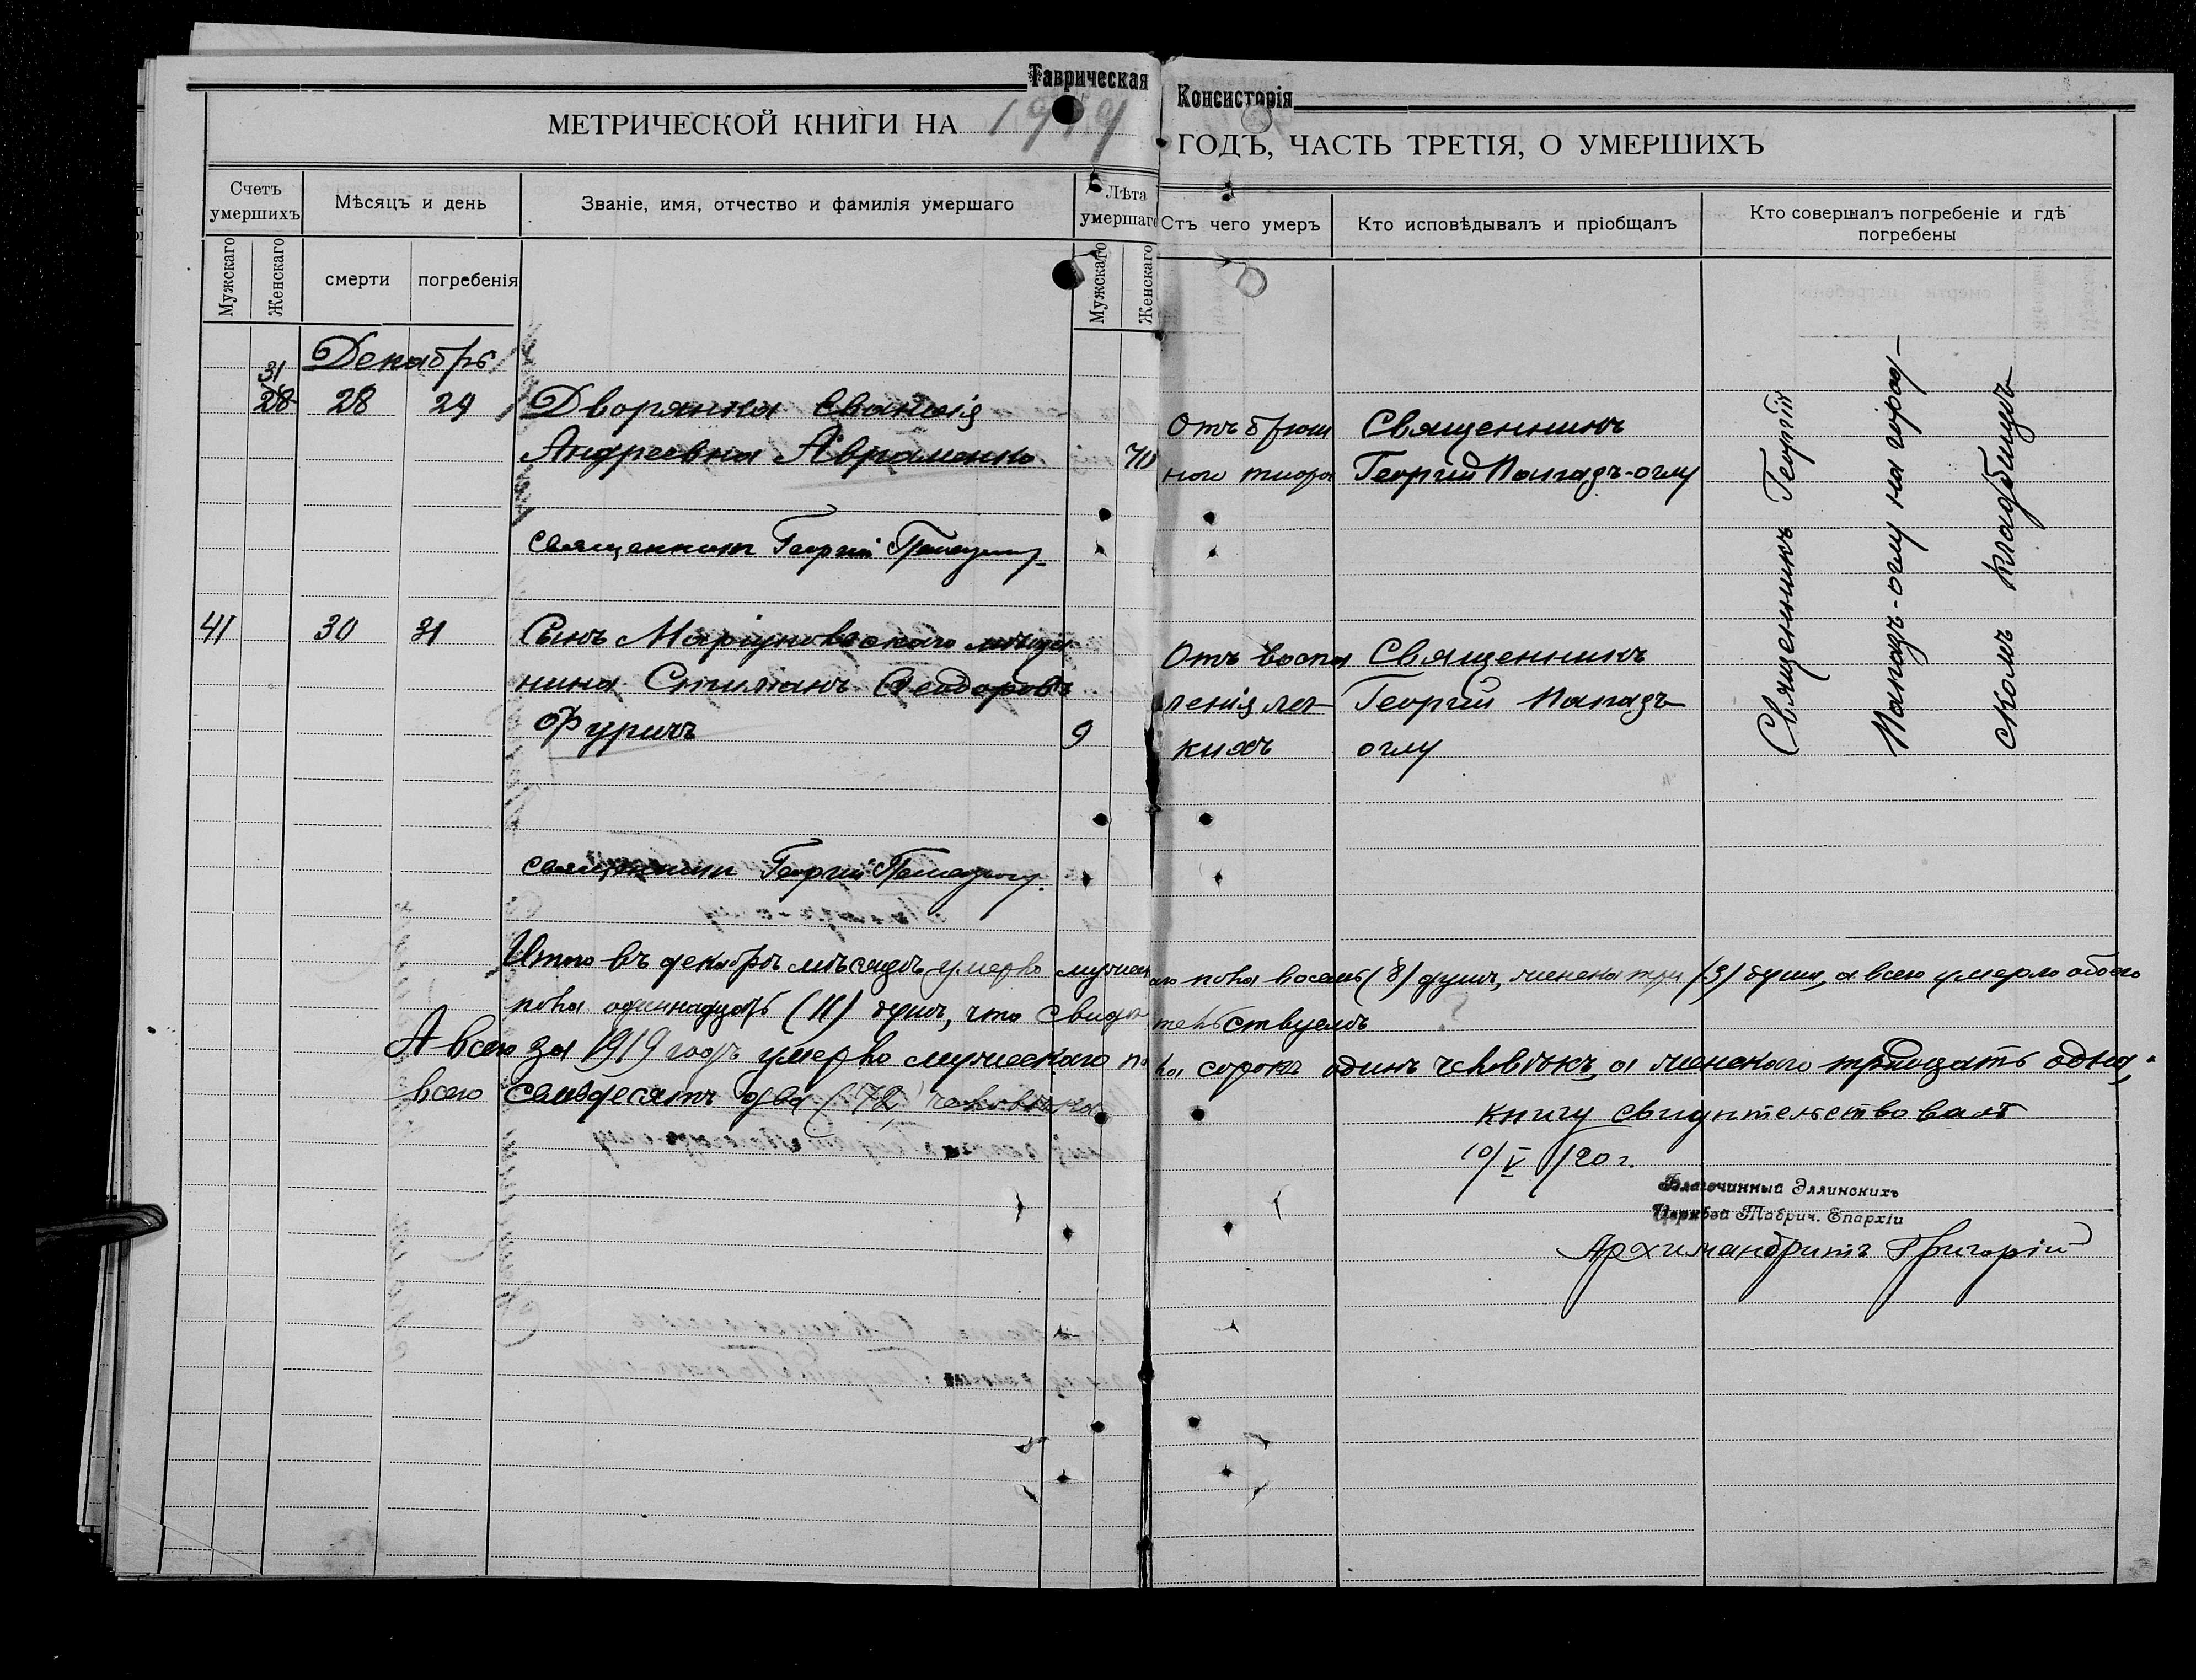 Таврическая Консисторія
МЕТРИЧЕСКОЙ КНИГИ НА 1919 ГОДЪ, ЧАСТЬ ТРЕТІЯ, О УМЕРШИХЪ
Счетъ умершихъ
Мѣсяцъ и день
Званіе, имя, отчество и фамилія умершаго
Лѣта умершаго
Отъ чего умеръ
Кто исповѣдывалъ и пріобщалъ
Кто совершалъ погребеніе и гдѣ погребены
Мужскаго
Женскаго
смерти
погребенія
Мужскаго
Женскаго
Декабрь
31
28 28 29 Дворянка
Андреевна Авраменко 70
Отъ брюш
ного тифа
Священникъ
Георгій Папазъ-оглу
Священникъ Георгій
Папазъ-оглу на город-
скомъ кладбищѣ
священникъ Георгій
41 30 31 Сынъ Маріупольскаго мѣща
нина Стилианъ Ѳеодоровъ
Фуричъ 9
Отъ воспа
ленія лег
кихъ
Священникъ
Георгій Папазъ
оглу
священникъ Георгій
Итого въ декабрѣ мѣсяцѣ умерло мужскаго пола восемь (8) душъ, женска три (3) души, а всего умерло обоего
пола одиннадцать (11) душъ, что свидѣтельствуемъ
А всего за 1919 годъ умерло мужескаго пола сорокъ одинъ человѣкъ, а женскаго тридцать одна,
всего семьдесятъ два (72) человѣка
книгу свидѣтельствовалъ
10/V 1920 г.
Благочинный Эллинскихъ
Церквей Таврич. Епархіи
Архимандритъ Григорій